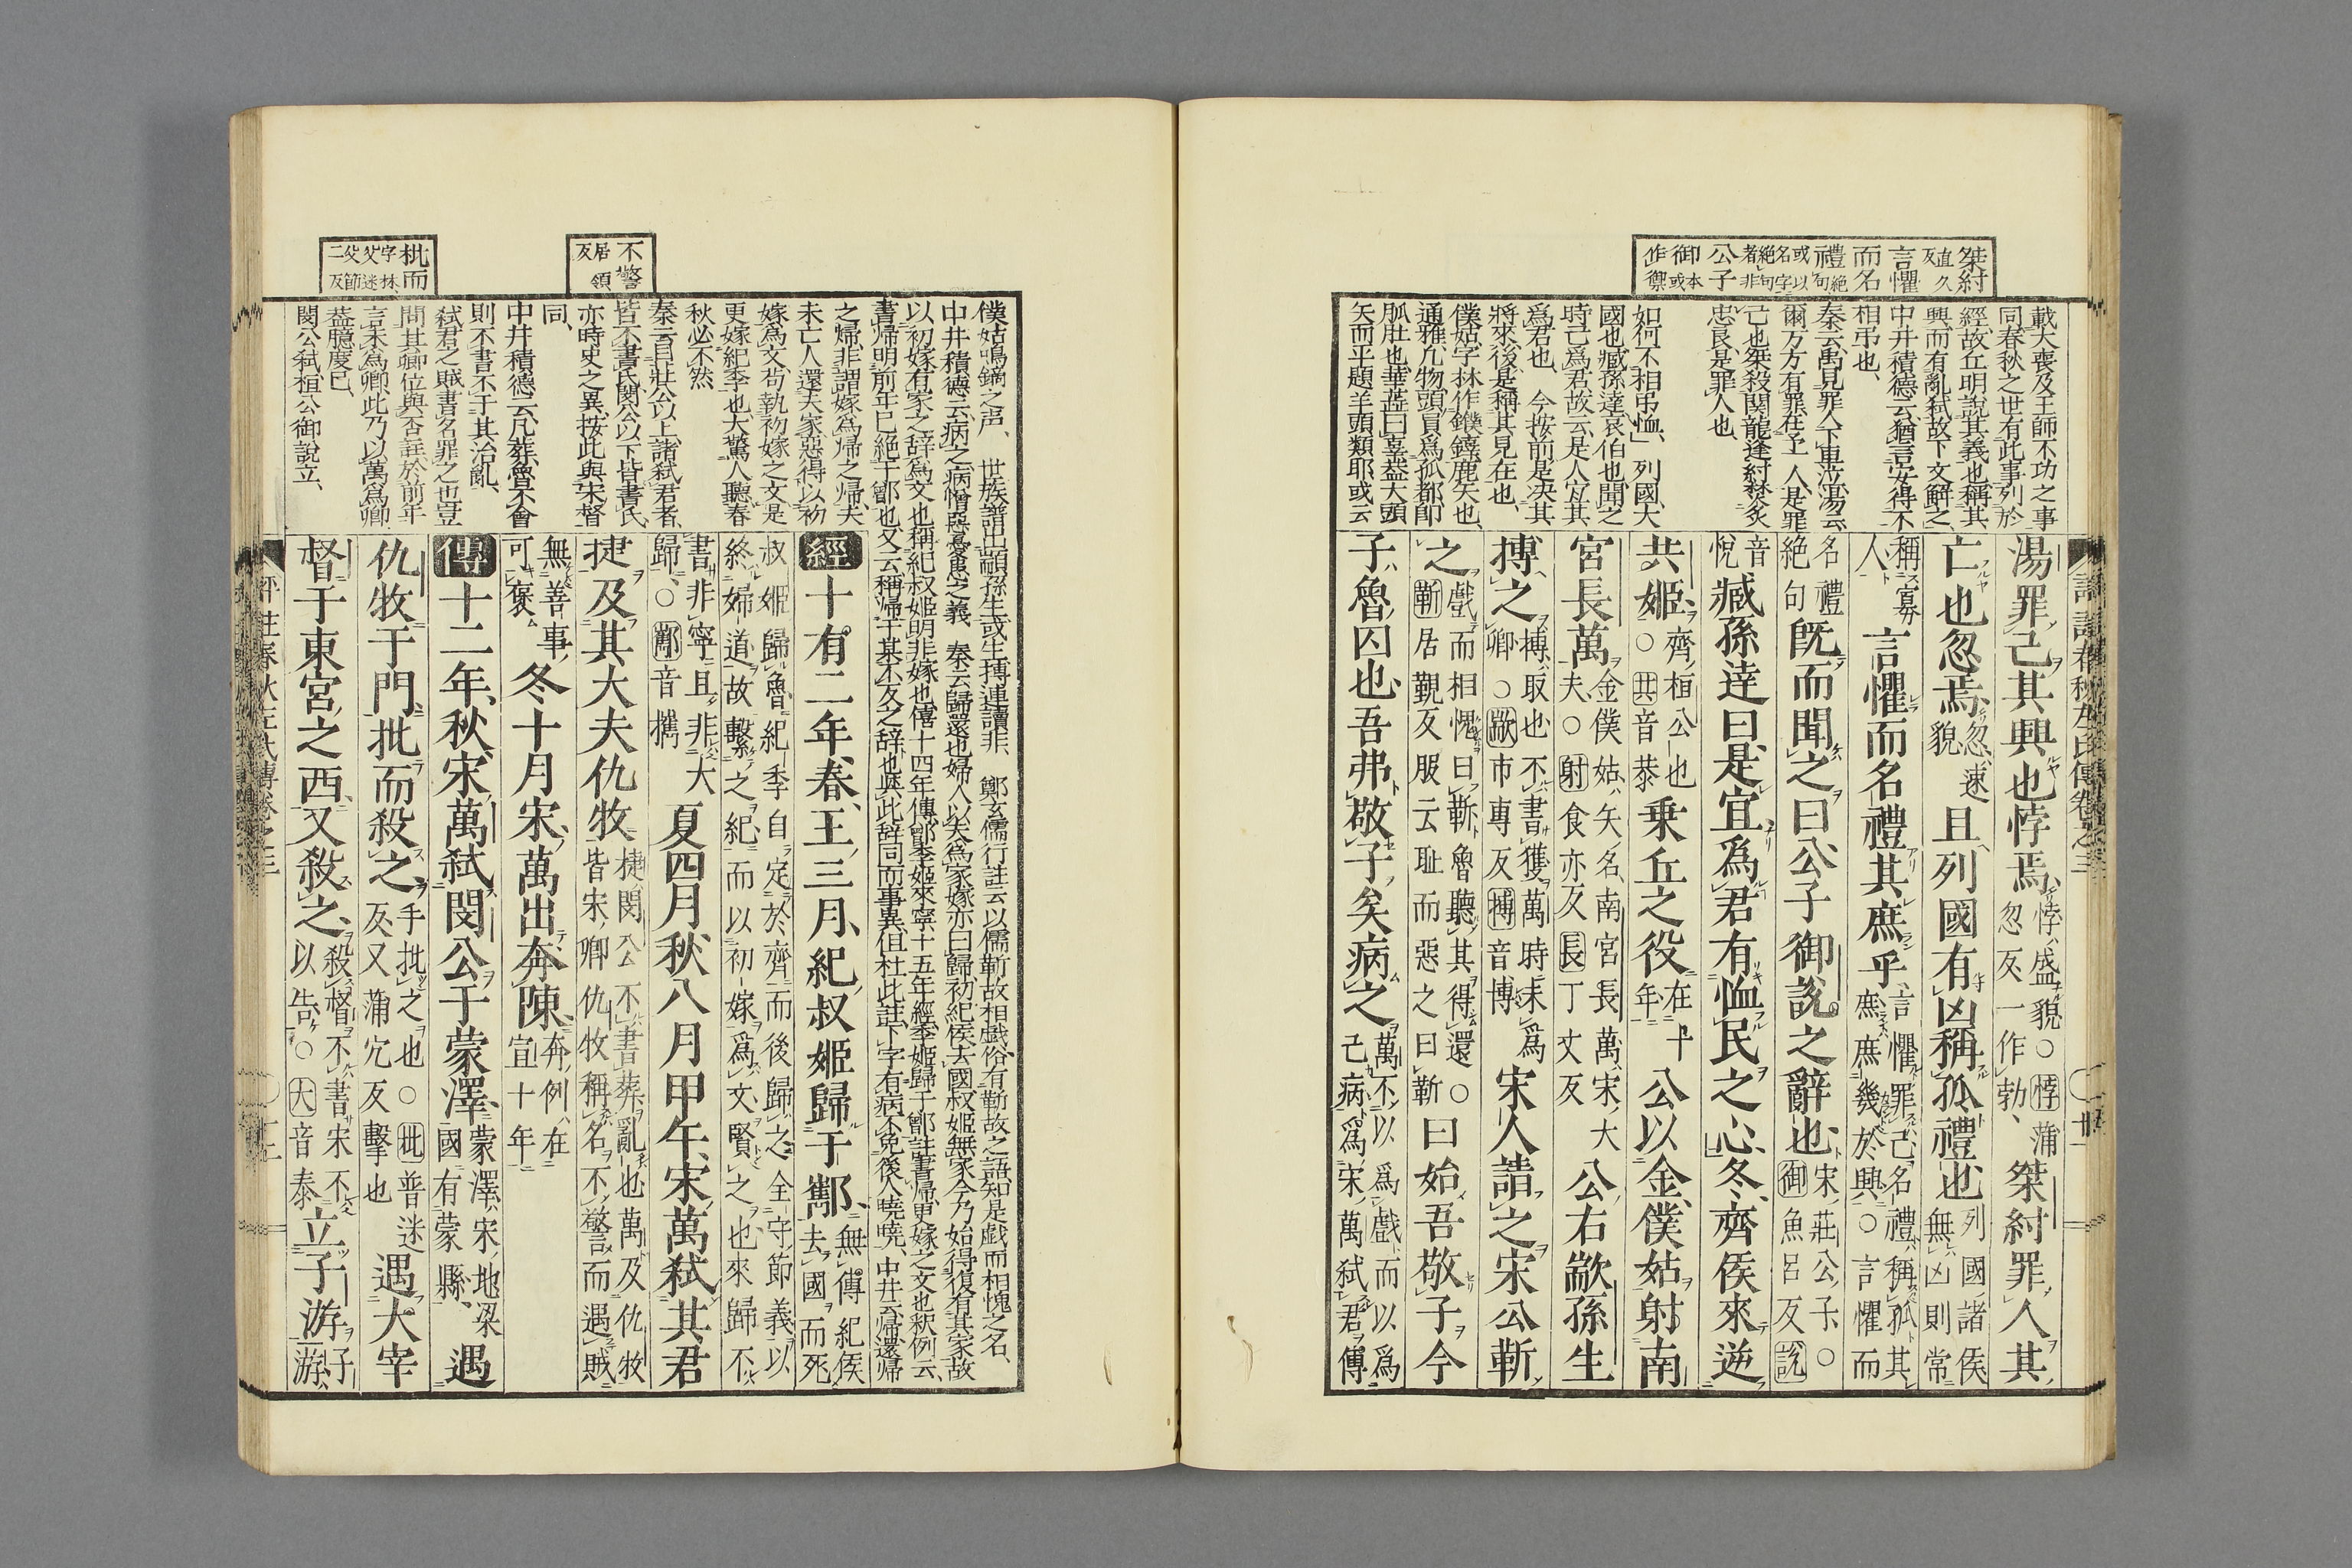 桀紂
直久
反
言懼
而名
禮絕句
或以
名字
絕句
者非
公子
御本或
作禦
載大喪及王師不功之事
同春秋之世有此事列於
經故丘明說其義也稱其
興而有亂弑故下文解之
中井積德云猶言安得不
相弔也
秦云禹見罪人下車泣湯云
爾万方有罪在予一人是罪
己也桀殺関龍逢紂焚炙
忠良是罪人也
如何不相弔恤」列國大
國也臧孫達哀伯也聞之
時己爲君故云是人宜其
爲君也 今按前是决其
將來後是稱其見在也
僕姑字林作鏷鏴鹿矢也
通雅凡物頭員爲孤都卽
胍肚也
矢而平題羊頭類耶或云
湯罪己其興也悖焉悖盛貌○悖蒲
忽反一作勃桀紂罪人其
亡也忽焉忽速
貌且列國有凶稱孤禮也列國諸侯
無凶則常
稱寡
人言懼而名禮其庶乎言懼罪己名禮稱孤其
庶庶幾於興○言懼而
名禮
絕句旣而聞之曰公子御說之辭也宋莊公子○
御魚呂反說
音
悅臧孫達曰是宜爲君有恤民之心冬齊侯來逆
共姬齊桓公也
○共音恭乗丘之役在十
年公以金僕姑射南
宮長萬金僕姑矢名南宮長萬宋大
夫○射食亦反長丁丈反公右歂孫生
搏之搏取也不書獲萬時未爲
卿○歂市專反搏音博宋人請之宋公靳
之戲而相愧曰靳魯聽其得還○
靳居覲反服云耻而惡之曰靳曰始吾敬子今
子魯囚也吾弗敬子矣病之萬不以爲戲而以爲
己病爲宋萬弑君傳
不警
居領
反
枇而
字林
父迷
父節
二反
僕姑鳴鏑之声 世族譜出顓孫生或生搏連讀非 鄭玄儒行註云以儒靳故相戲俗有靳故之語知是戲而相愧之名
中井積德云病之病憎惡憂患之義 秦云歸還也婦人以夫爲家嫁亦曰歸初紀侯去國叔姬無家今乃始得復有其家故
以初嫁有家之辞爲文也稱紀叔姬明非嫁也僖十四年傳鄫季姬來寧十五年經季姬歸于鄫註書歸更嫁之文也釈例云
書歸明前年已絕于鄫也又云稱歸于某不反之辞也與此辞同而事異但杜此註下字有病不免後人曉曉 中井云歸還歸
之歸非謂嫁爲歸之歸夫
未亡人還夫家惡得以初
嫁爲文苟執初嫁之文是
更嫁紀季也大驚人聽春
秋必不然
秦云自莊公以上諸弑君者
皆不書氏閔公以下皆書氏
亦時史之異按此與宋督
同
中井積德云凡葬魯不會
則不書不于其治亂
弑君之賊書名罪之也豈
問其卿位與否註於前年
言未爲卿此乃以萬爲卿
葢臆度已
閔公弑桓公御說立
經十有二年春王三月紀叔姬歸于酅無傳紀侯
去國而死
叔姬歸魯紀季自定於齊而後歸之全守節義以
終婦道故繫之紀而以初嫁爲文賢之也來歸不
書非寧且非大
歸○酅音攜夏四月秋八月甲午宋萬弑其君
捷及其大夫仇牧捷閔公不書葬亂也萬及仇牧
皆宋卿仇牧稱名不警而遇賊
無善事
可褒冬十月宋萬出奔陳奔例在
宣十年
傳十二年秋宋萬弑閔公于蒙澤蒙澤宋地梁
國有蒙縣遇
仇牧于門批而殺之手批之也○批普迷
反又蒲穴反擊也遇大宰
督于東宮之西又殺之殺督不書宋不
以告○大音泰立子游子
游